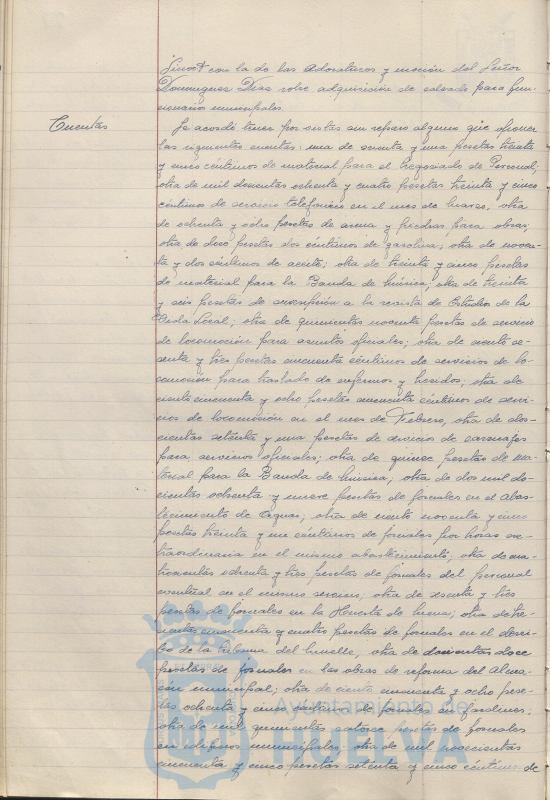 con la de las Adoratrices y moción del Señor
Dominguez Dias sobre adquisición de calzado para fun-
cionarios municipales.
Cuentas
Se acordó tener por vistas sin reparo alguno que oponer
las siguientes cuentas: una de sesenta y una pesetas treinta
y cinco céntimos de material para el Negociado de Personal;
otra de mil doscientas ochenta y cuatro pesetas treinta y cinco
céntimos de servicio telefonico en el mes de Marzo; otra
de ochenta y ocho pesetas de arena y piedras para obras;
otra de doce pesetas dos céntimos de gasolina; otra de noven-
ta y dos céntimos de aceite; otra de treinta y cinco pesetas
de material para la Banda de Música; otra de treinta
y seis pesetas de suscripción a la revista de Estudios de la
Vida Local; otra de quinientas noventa pesetas de servicio
de locomoción para asuntos oficiales; otra de ciento se-
senta y tres pesetas cincuenta céntimos de servicios de lo-
comoción para traslado de enfermos y heridos; otra de
ciento cincuenta y ocho pesetas cincuenta céntimos de servi-
cios de locomoción en el mes de Febrero; otra de dos-
cientas setenta y una pesetas de servicio de carruajes
para servicios oficiales; otra de quince pesetas de ma-
terial para la Banda de música; otra de dos mil do-
cientas ochenta y nueve pesetas de jornales en el abas-
tecimiento de Aguas; otra de ciento noventa y cinco
pesetas treinta y un céntimos de jornales por horas ex-
traordinaria en el mismo abastecimiento; otra de cua-
trocientas ochenta y tres pesetas de jornales del personal
eventual en el mismo servicio; otra de sesenta y tres
pesetas de jornales en la Huerta de Mena; otra de tres-
cientas cincuenta y cuatro pesetas de jornales en el derri-
bo de la tribuna del muelle; otra de doscientas doce
pesetas de jornales en las obras de reforma del Alma-
cén municipal; otra de ciento cincuenta y ocho pese-
tas ochenta y cinco céntimos de jornales en jardines;
otra de mil quinientas catorce pesetas de jornales
en edificios municipales; otra de mil novecientas
cincuenta y cinco pesetas setenta y cinco céntimos de
Ayuntamiento de
HUELVA